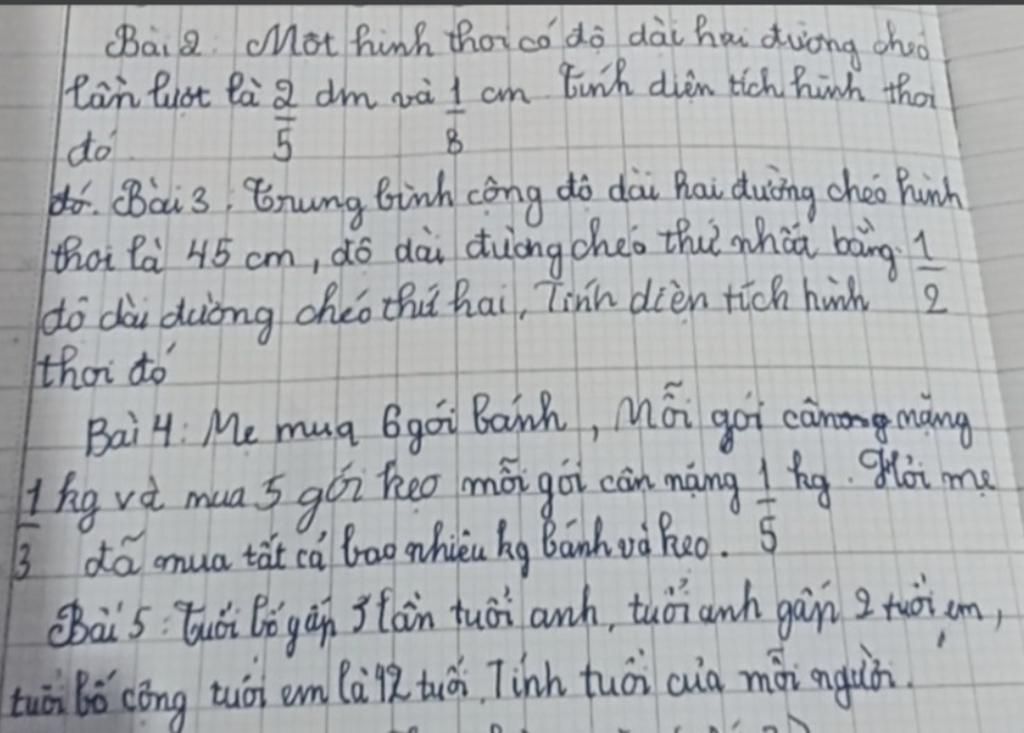 Bài 2: Một hình thoi có độ dài hai đường chéo
lần lượt là 2/5 dm và 1/8 cm tính diện tích hình thoi
đó
đó. Bài 3: Trung bình cộng độ dài hai đường chéo hình
thoi là 45 cm, độ dài đường chéo thứ nhất bằng 1/2
độ dài đường chéo thứ hai, Tính diện tích hình
thoi đó
Bài 4: Mẹ mua 6 gói bánh, Mỗi gói cân nặng
1/3 kg và mua 5 gói kẹo mỗi gói cân nặng 1/5 kg. Hỏi mẹ
đã mua tất cả bao nhiêu kg bánh và kẹo.
Bài 5: Tuổi bố gấp 3 lần tuổi anh, tuổi anh gấp 2 tuổi em,
tuổi bố cộng tuổi em là 42 tuổi. Tính tuổi của mỗi người.